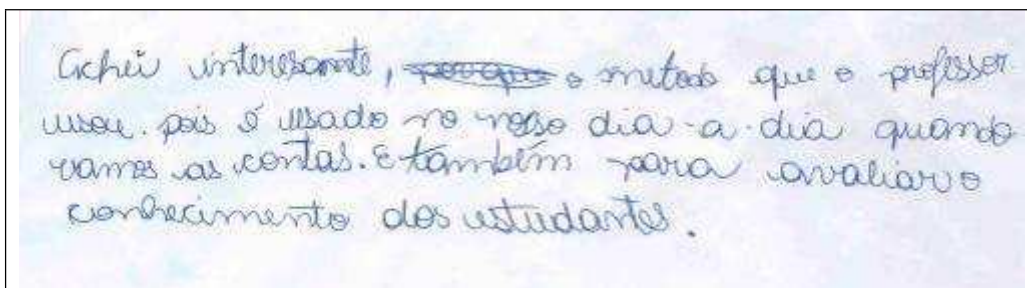 Achei interesante, o metodo que o professor
usou. pois é usado no nosso dia-a-dia quando
vamos as contas. E também para avaliar o
conhecimento dos estudantes.